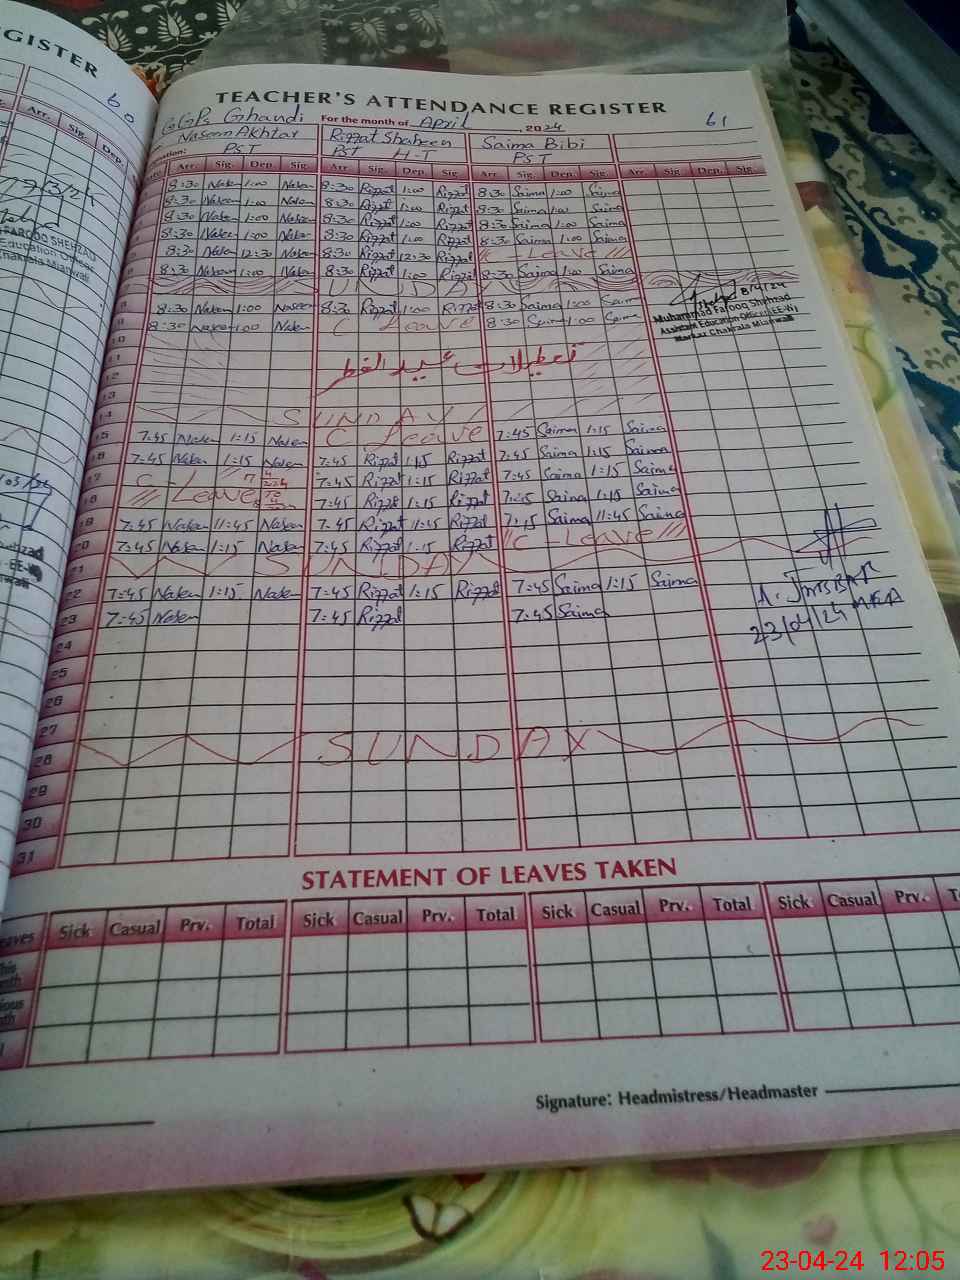 GISTER
TEACHER'S ATTENDANCE REGISTER
6
0
GGPS Ghandi For the month of April , 2024 61
Naseem Akhtar Rizzat Shaheen Saima Bibi
PST PST H-T PST
Arr. Sig. Dep. Arr. Sig. Dep. Sig. Arr. Sig. Dep. Sig. Arr. Sig. Dep. Sig. Arr. Sig. Dep. Sig.
8:30 Naseem 1:00 Naseem 8:30 Rizzat 1:00 Rizzat 8:30 Saima 1:00 Saima
8:30 Naseem 1:00 Naseem 8:30 Rizzat 1:00 Rizzat 8:30 Saima 1:00 Saima
8:30 Naseem 1:00 Naseem 8:30 Rizzat 1:00 Rizzat 8:30 Saima 1:00 Saima
8:30 Naseem 1:00 Naseem 8:30 Rizzat 1:00 Rizzat 8:30 Saima 1:00 Saima
8:30 Naseem 12:30 Naseem 8:30 Rizzat 12:30 Rizzat C - Leave
8:30 Naseem 1:00 Naseem 8:30 Rizzat 1:00 Rizzat 8:30 Saima 1:00 Saima
8:30 Naseem 1:00 Naseem 8:30 Rizzat 1:00 Rizzat 8:30 Saima 1:00 Saima
9 8:30 Naseem 1:00 Naseem C Leave 8:30 Saima 1:00 Saima
8/4/24
Muhammad Farooq Shehzad
Assistant Education Officer (EE-W)
Markaz Chakrala Mianwali
FAROOQ SHEHZAD
Education Officer
Chakrala Mianwali
10
11
تعطیلات عید الفطر
12
13
14 SUNDAY
15 7:45 Naseem 1:15 Naseem C Leave 7:45 Saima 1:15 Saima
16 7:45 Naseem 1:15 Naseem 7:45 Rizzat 1:15 Rizzat 7:45 Saima 1:15 Saima
17 C - 7:45 Rizzat 1:15 Rizzat 7:45 Saima 1:15 Saima
18 Leave 7:45 Rizzat 1:15 Rizzat 7:45 Saima 1:15 Saima
19 7:45 Naseem 11:45 Naseem 7:45 Rizzat 11:45 Rizzat 7:45 Saima 11:45 Saima
20 7:45 Naseem 1:15 Naseem 7:45 Rizzat 1:15 Rizzat C - Leave
21 SUNDAY
22 7:45 Naseem 1:15 Naseem 7:45 Rizzat 1:15 Rizzat 7:45 Saima 1:15 Saima
23 7:45 Naseem 7:45 Rizzat 7:45 Saima
23/04/24 MEA
24
25
26
27
28 SUNDAY
29
30
31
STATEMENT OF LEAVES TAKEN
eaves Sick Casual Prv. Total Sick Casual Prv. Total Sick Casual Prv. Total Sick Casual Prv.
Signature: Headmistress/Headmaster
23-04-24 12:05